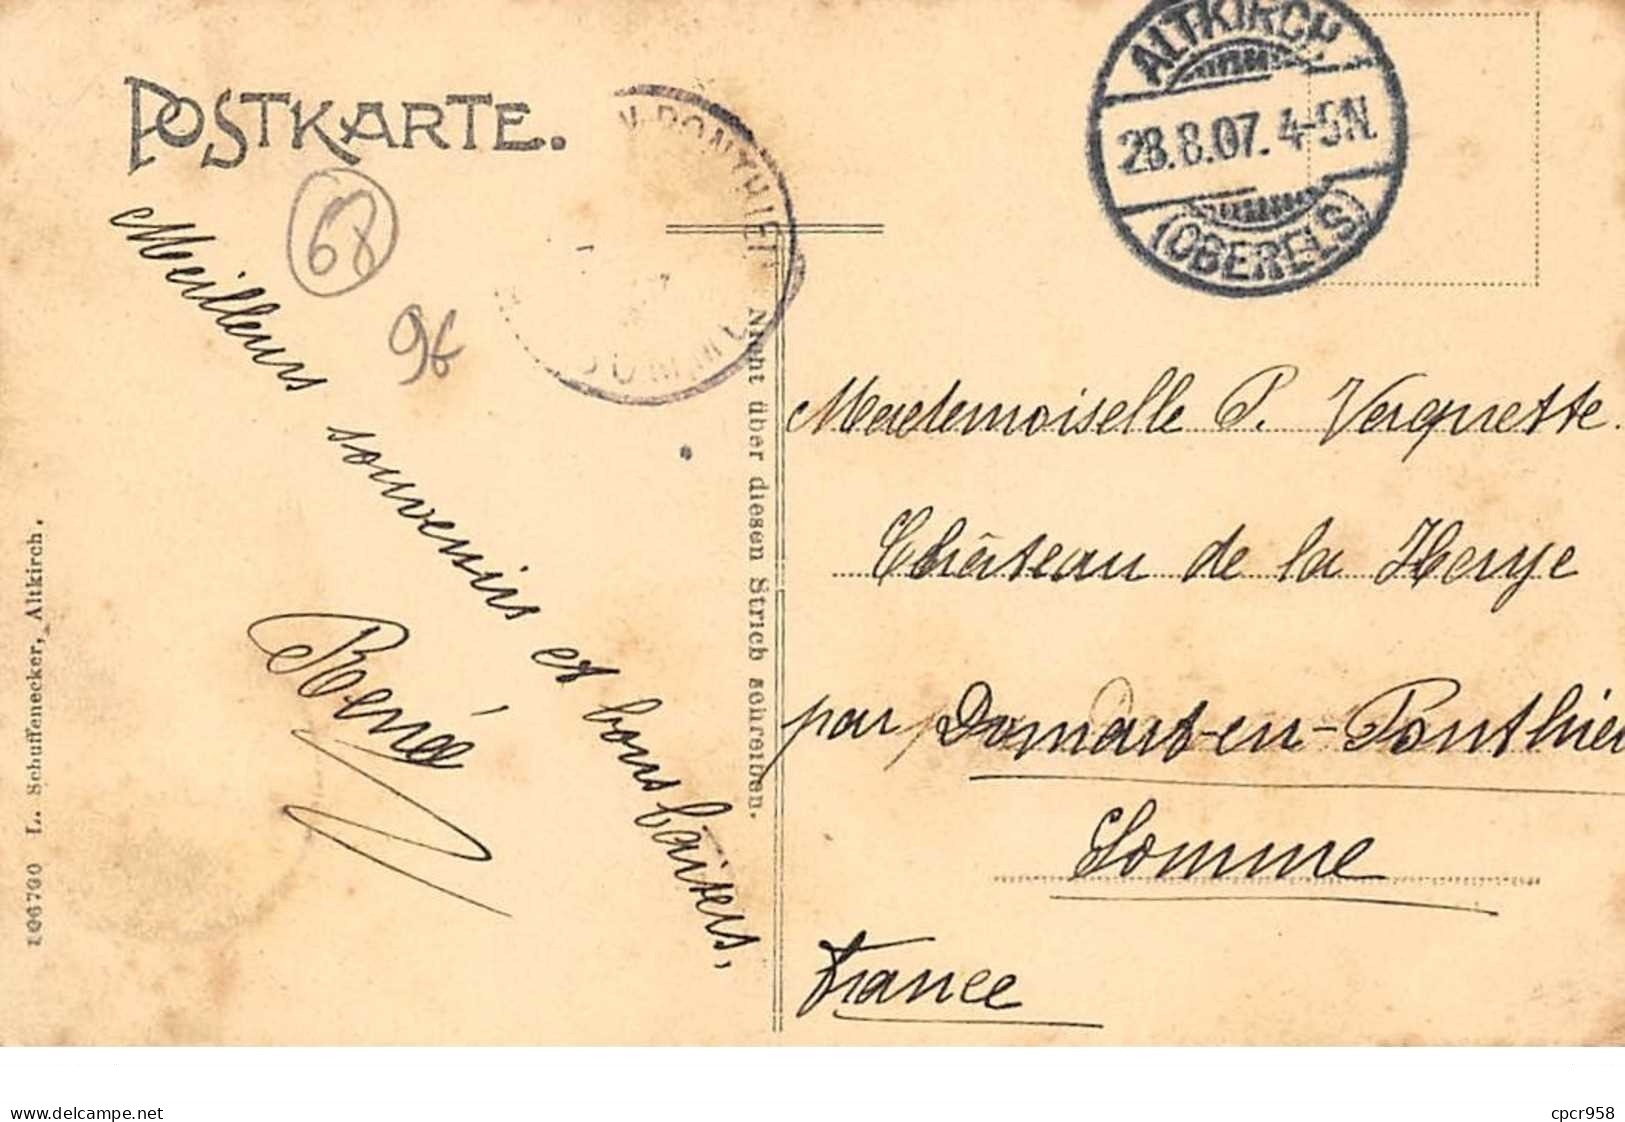 POSTKARTE.
ALTKIRCH
28.8.07. 4-5N.
(OBERELS)
PONTHIE
SOMME
68
96
Meilleurs souvenirs et bons baisers,
Renée
Nicht über diesen Strich schreiben.
106790 L. Schuffenecker, Altkirch.
Mademoiselle P. Verquette.
Château de la Haye
par Domart-en-Ponthieu
Somme
France
www.delcampe.net
cpcr958